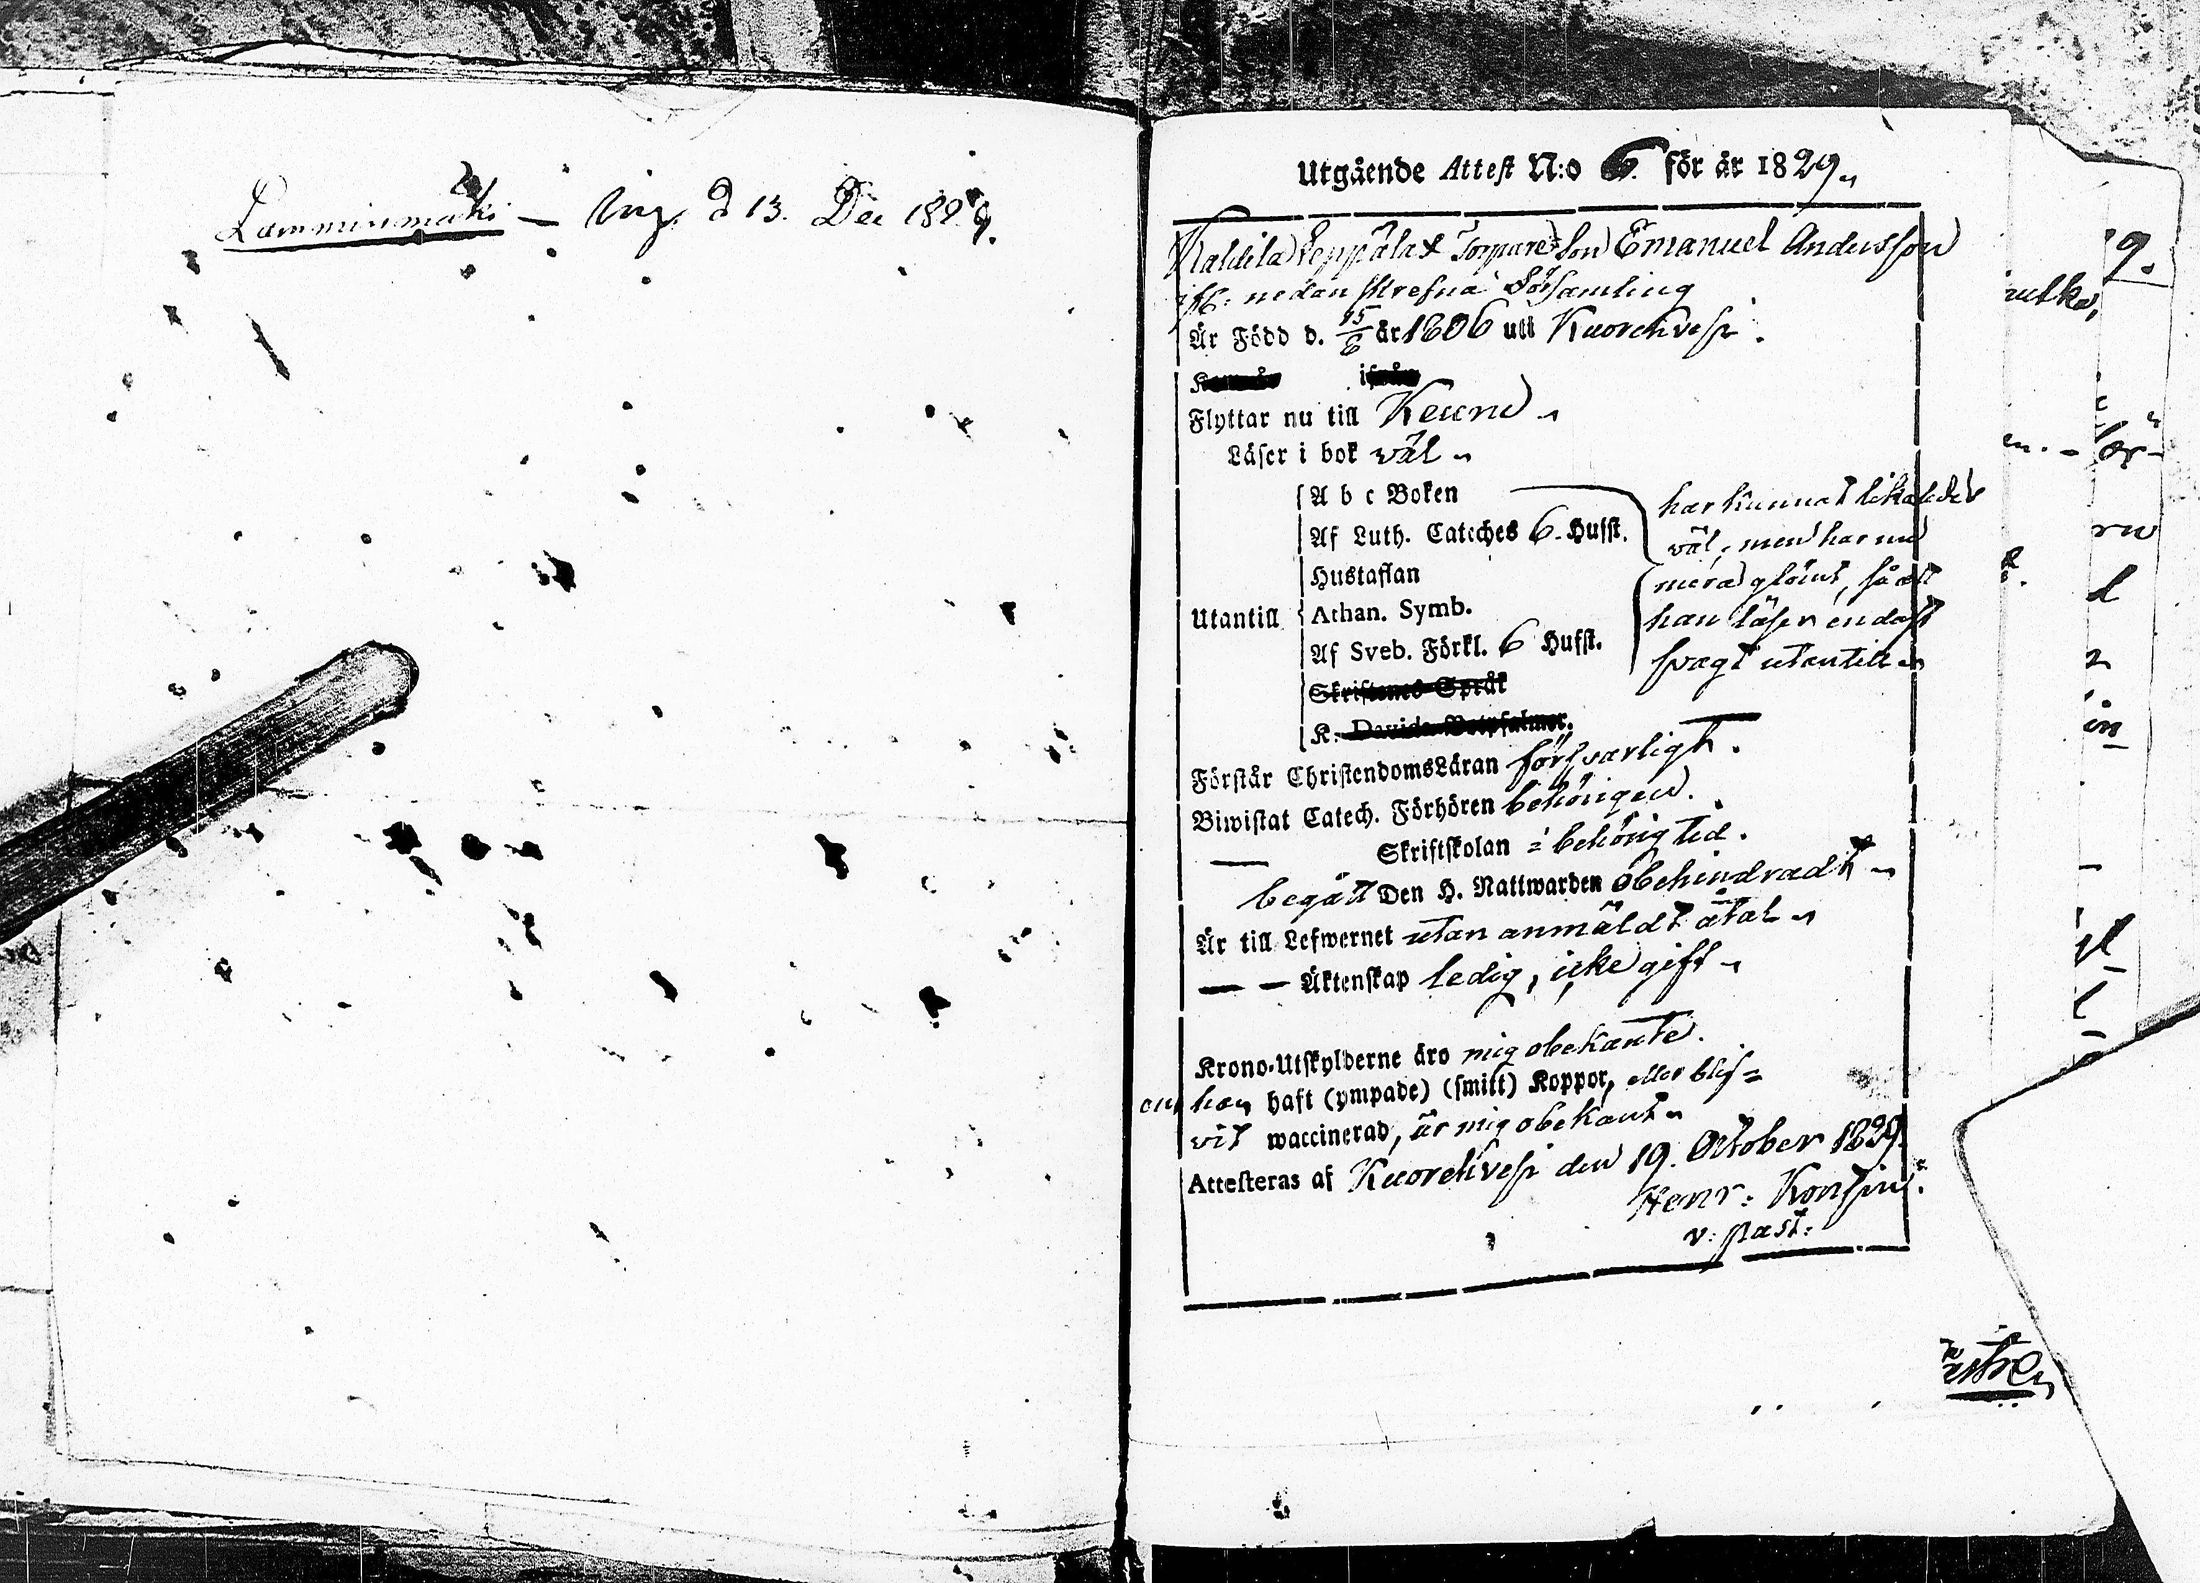 Lamminmäki — Ing. d 13. Dec 1829.
Utgående Attest N:o 6. för år 1829.
Kaltila Leppälax Torpare Son Emanuel Andersson
ifr: nedanskrefna Församling
Är Född d. 15/6 år 1806 uti Kuorehvesi.
Flyttar nu till Keuru
Läser i bok wäl
A b c Boken
Af Luth. Cateches 6. Hufst.
Hustaflan
Utantill Athan. Symb.
Af Sveb. Förkl. 6 Hufst.
Skriftenes Språk
K. Davids Botpsalmer.
har kunnat likaledes
väl, men har nu
mera glömt, så att
han läser endast
svagt utantill
Förstår ChristendomsLäran försvarligt.
Biwistat Catech. Förhören behörigen.
— Skriftskolan i behörig tid.
begått Den H. Nattwarden obehindradt
Är till Lefwernet utan anmäldt åtal
— — Äktenskap ledig, icke gift
Krono-Utskylderne äro mig obekante.
om han haft (ympade) (smitt) Koppor, eller blif=
vit waccinerad, är mig obekant
Attesteras af Kuorehvesi den 19. October 1829.
Henr: Konsin.
v: past: